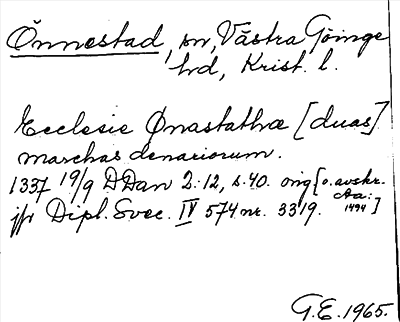 Önnestad, sn, Västra Göinge
hd, Krist. l.
Ecclesie Ønastathæ [duas]
marchas denariorum.
1337 19/9 DDan 2:12, s.40. orig [o. avskr.
Aa:
jfr Dipl. Svec. IV 574 nr. 3319. 1494]
G.E. 1965.